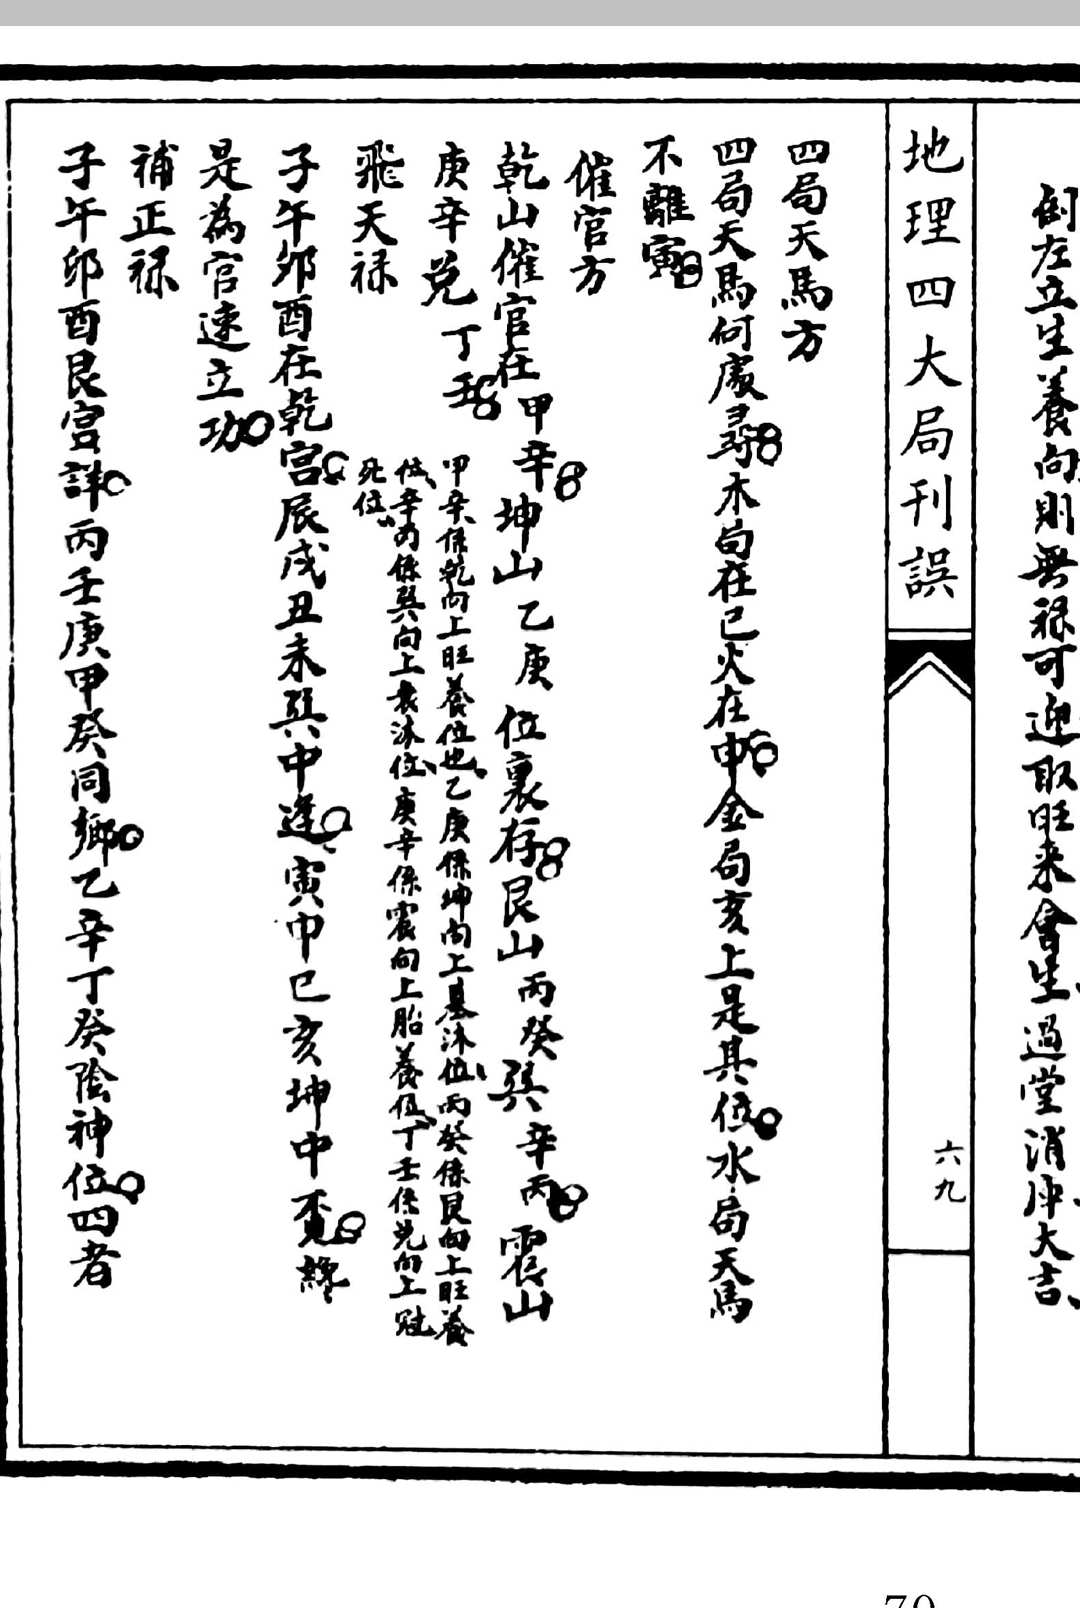 倒左立生養向則無祿可迎取旺來會生過堂消冲大吉
地理四大局刊誤
六九
四局天馬方
四局天馬何處尋木局在巳火在申金局亥上是其位水局天馬
不離寅
催官方
乾山催官在甲辛坤山乙庚位裏存艮山丙癸巽辛丙震山
庚辛兌丁壬
甲辛係乾向上旺養位也乙庚係坤向上墓沐位丙癸係艮向上旺養
位辛丙係巽向上衰沐位庚辛係震向上胎養位丁壬係兌向上冠
死位
飛天祿
子午卯酉在乾宮辰戌丑未巽中逢寅申巳亥坤中覓
是為官速立功
補正祿
子午卯酉艮宮詳丙壬庚甲癸同鄉乙辛丁癸陰神位四者
70